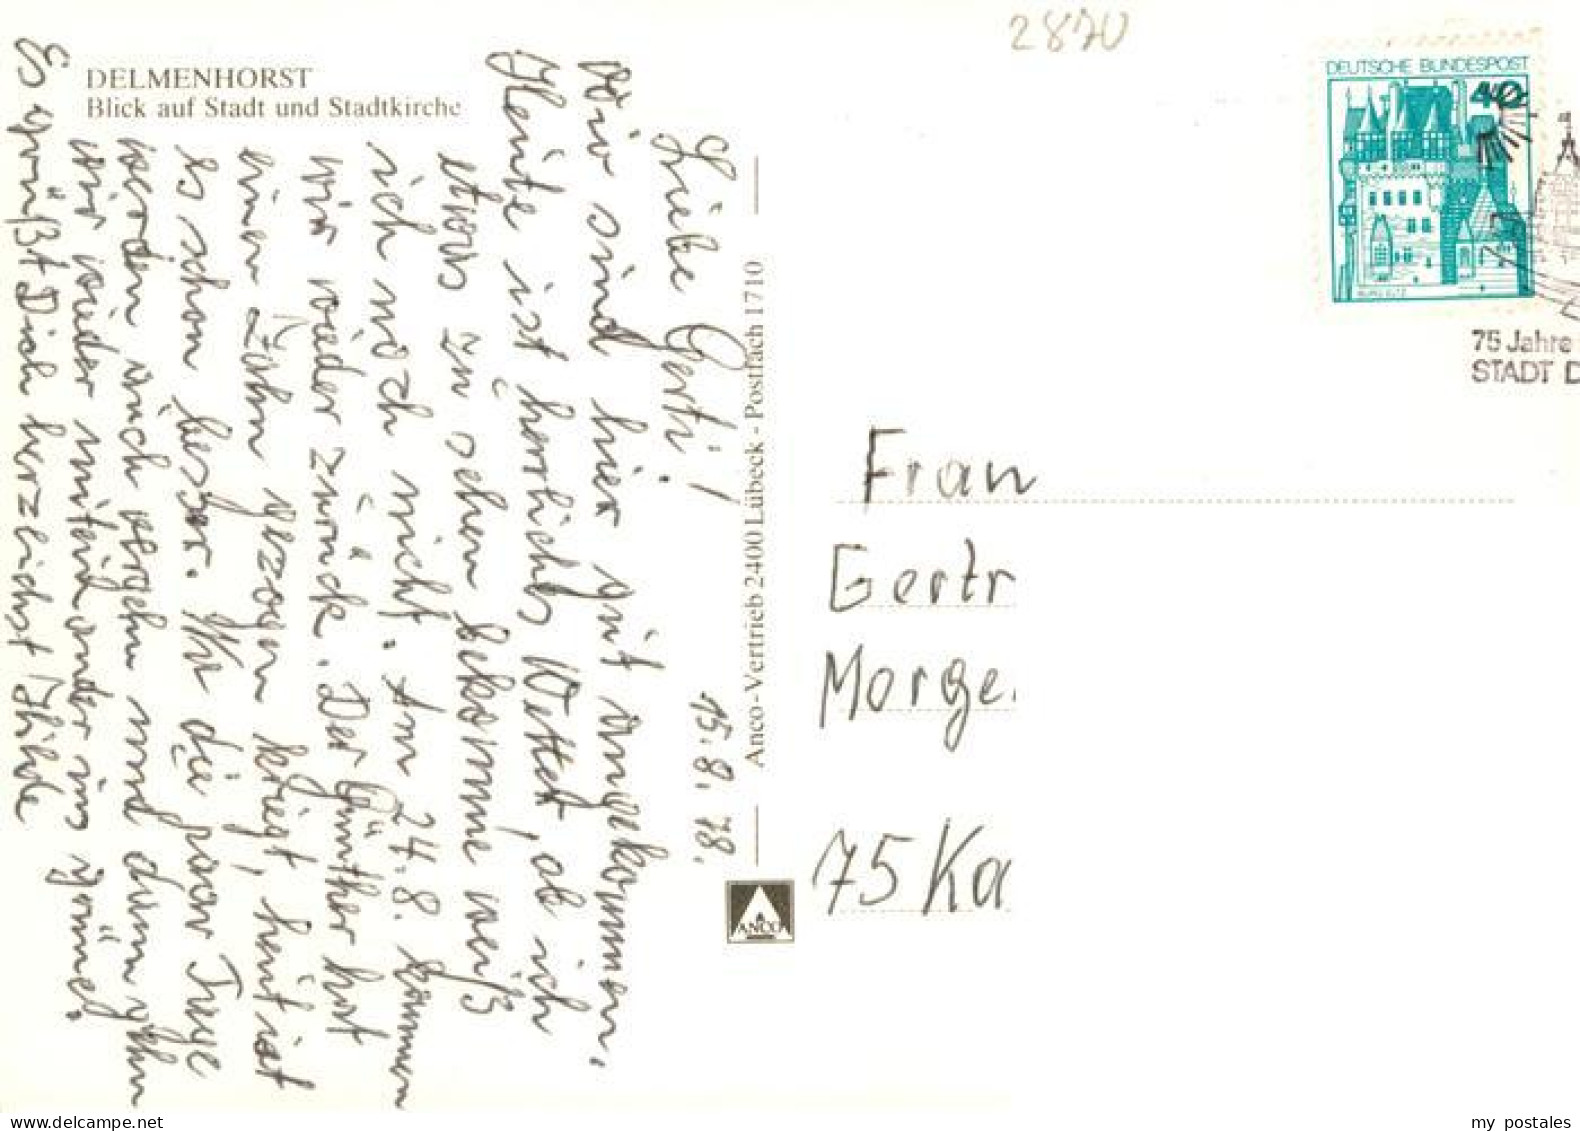 2870
DEUTSCHE BUNDESPOST
40
BURG ELTZ
75 Jahre
STADT D
DELMENHORST
Blick auf Stadt und Stadtkirche
15.8.78.
Liebe Gerti!
Wir sind hier gut angekommen.
Heute ist herrliches Wetter, ob ich
etwas zu sehen bekomme weiß
ich noch nicht. Am 24.8. kommen
wir wieder zurück. Der Günther hat
einen Zahn gezogen kriegt, heut ist
es schon besser. Na die paar Tage
werden auch vergehn und dann gehn
wir wieder miteinander ins
Es grüßt Dich herzlichst
Anco-Vertrieb 2400 Lübeck - Postfach 1710
ANCO
Frau
Gertr
Morge
75 Ka
my postales